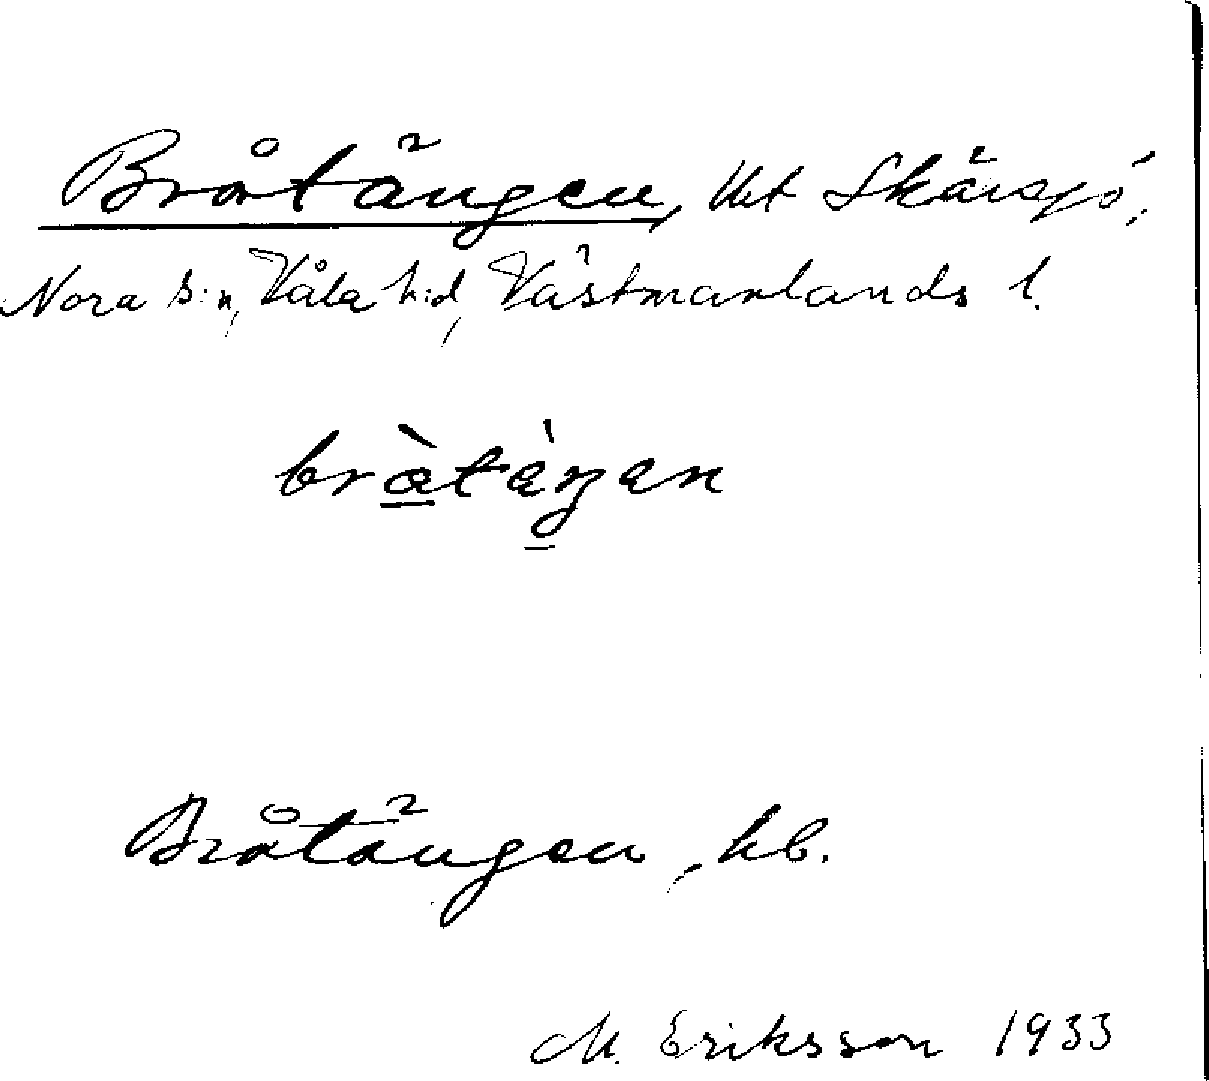 Bråtängen, Ut Skärsjö,
Nora s:n, Våla h:d, Västmanlands l.
bràtàŋan
Bråtängen, hb.
M. Eriksson 1933